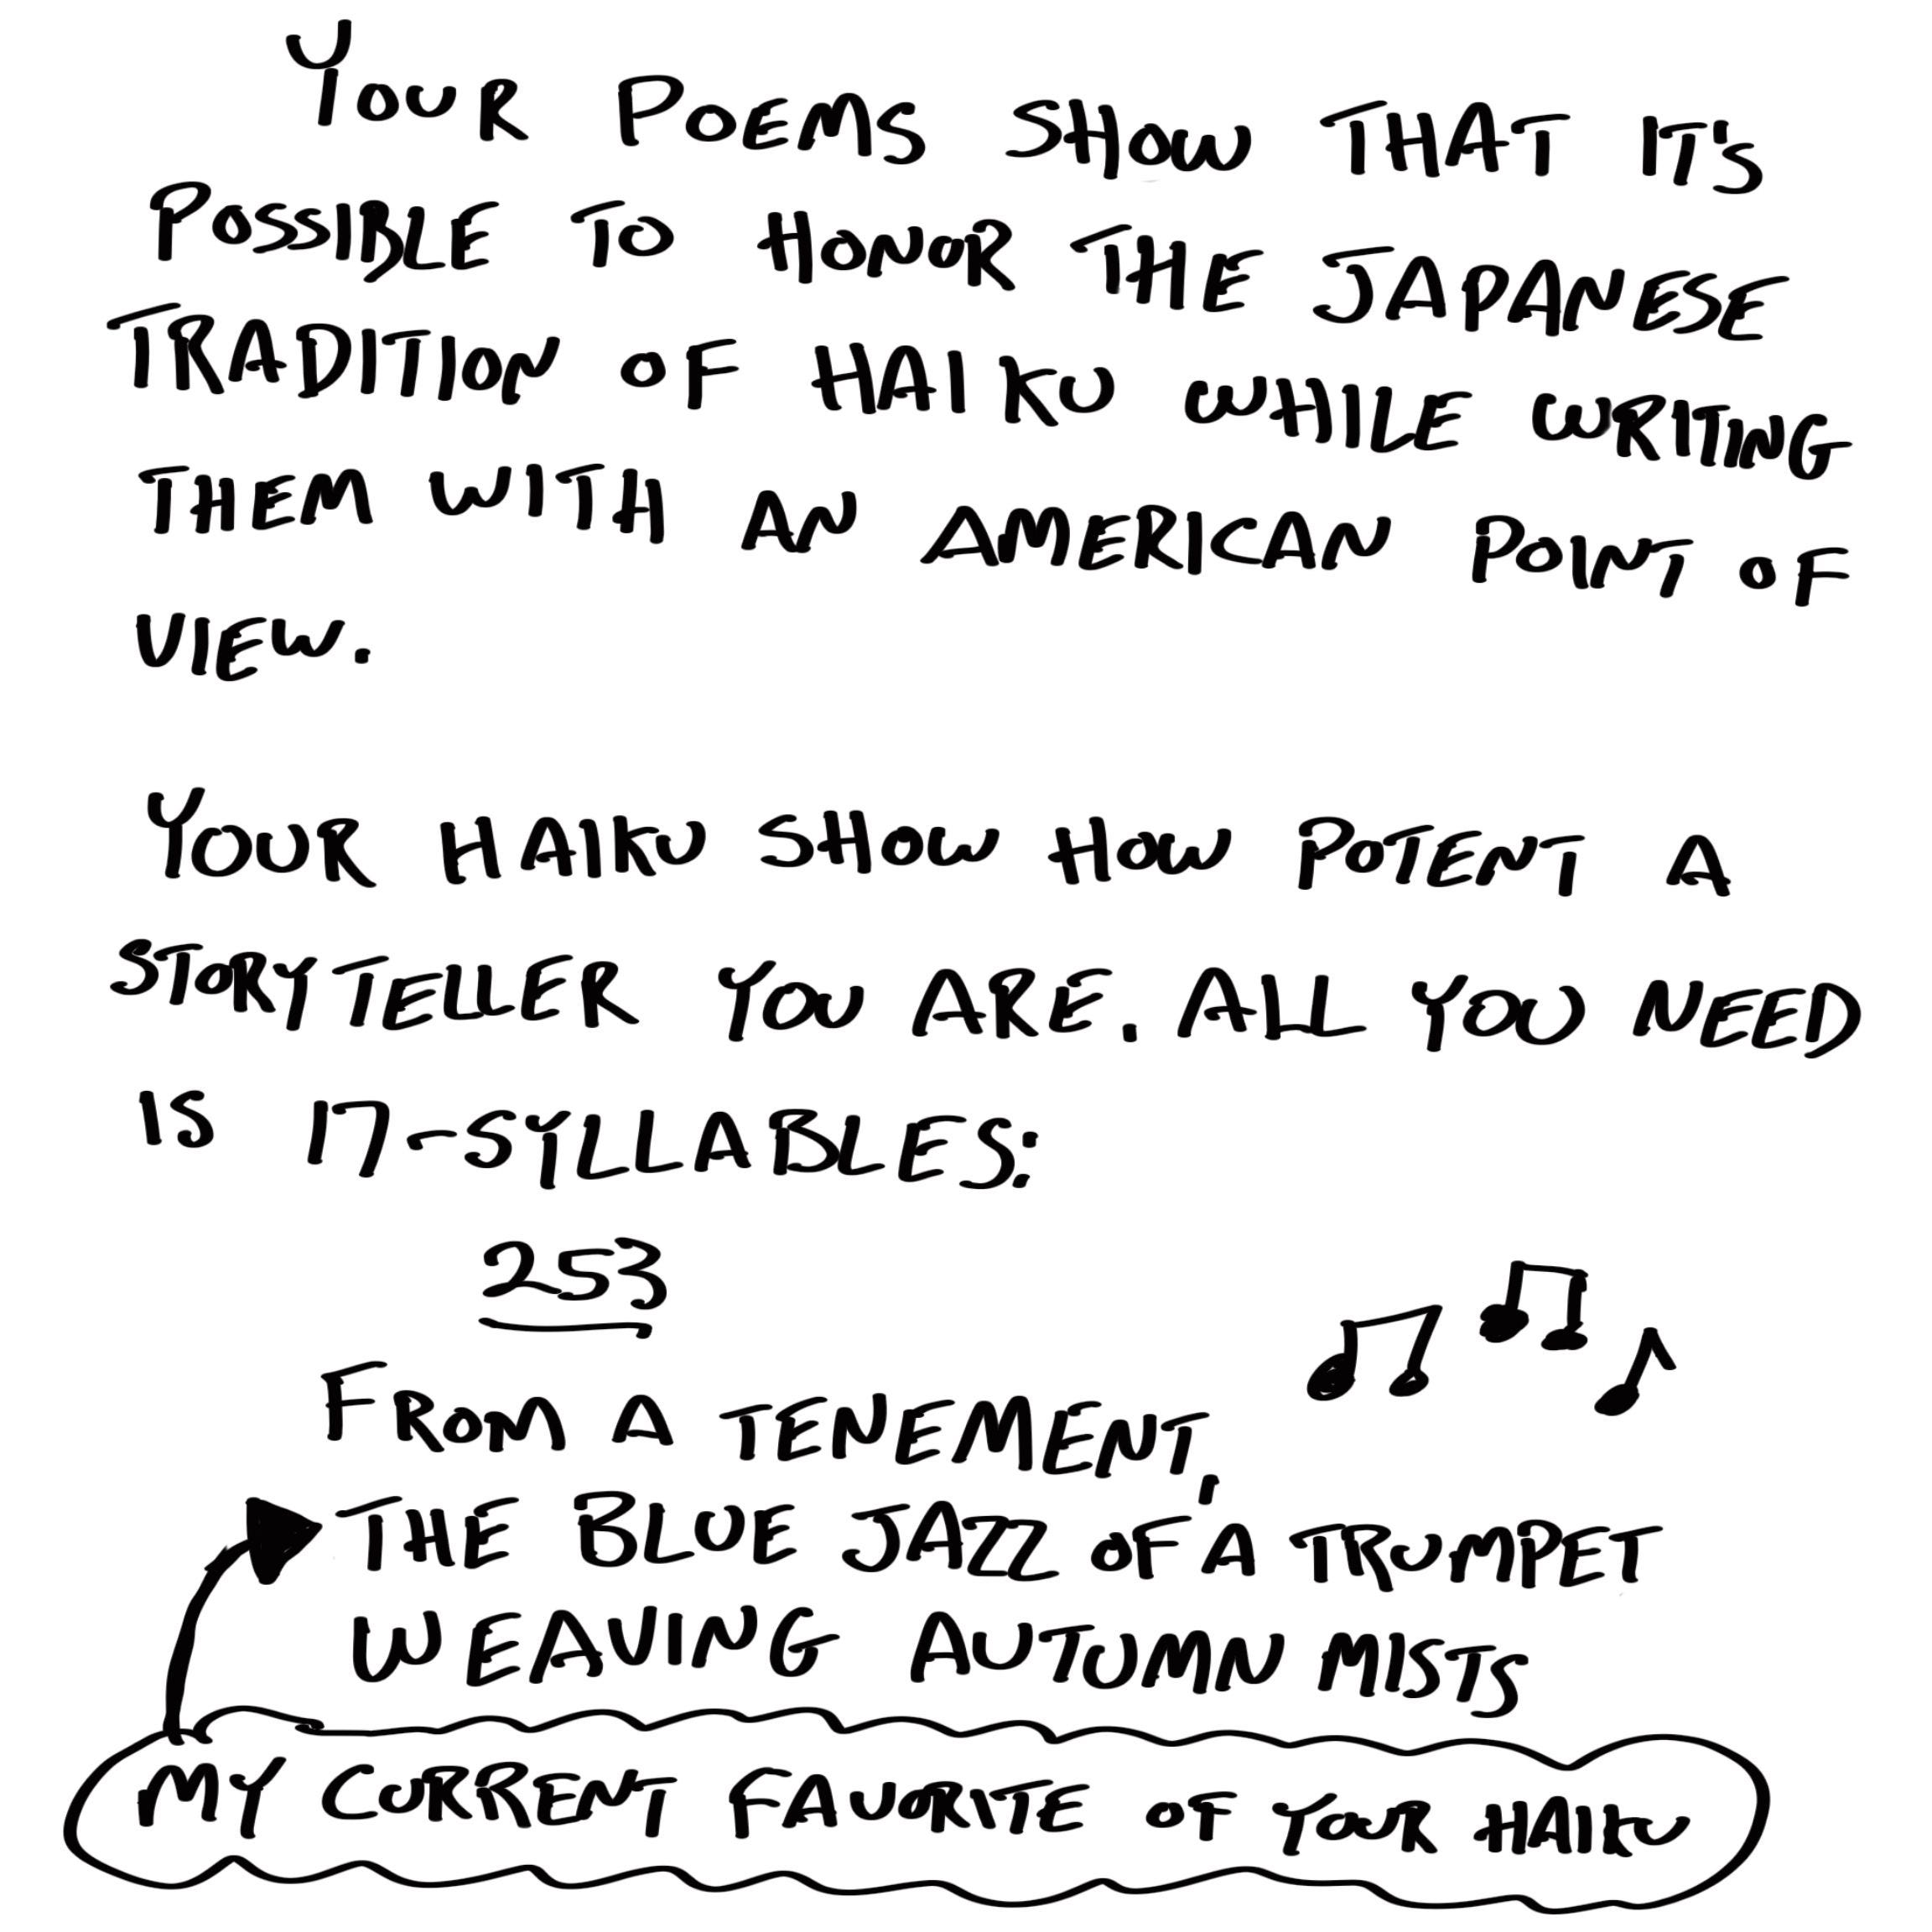 YOUR POEMS SHOW THAT IT'S
POSSIBLE TO HONOR THE JAPANESE
TRADITION OF HAIKU WHILE WRITING
THEM WITH AN AMERICAN POINT OF
VIEW.
YOUR HAIKU SHOW HOW POTENT A
STORYTELLER YOU ARE. ALL YOU NEED
IS 17-SYLLABLES:
253
FROM A TENEMENT,
THE BLUE JAZZ OF A TRUMPET
WEAVING AUTUMN MISTS
MY CURRENT FAVORITE OF YOUR HAIKU